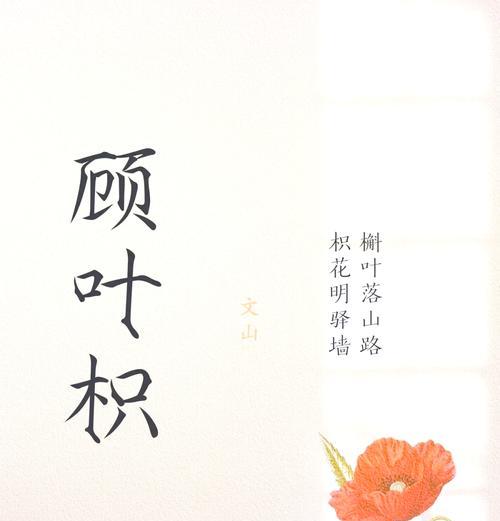 顾叶枳
文山
槲叶落山路
枳花明驿墙